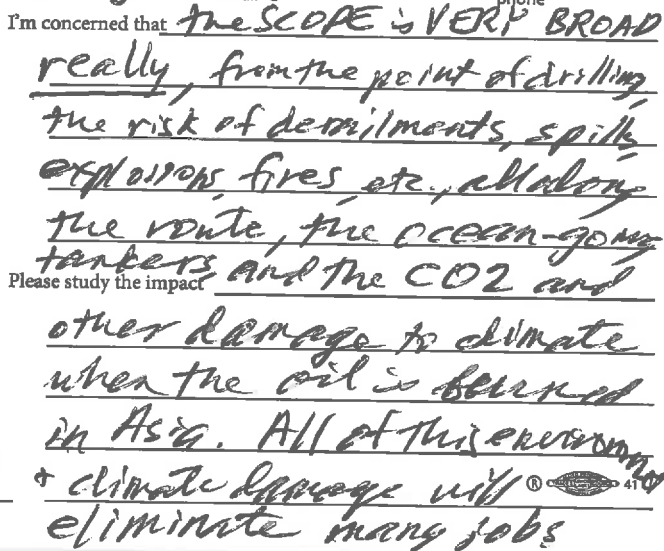 phone
I'm concerned that the SCOPE is VERY BROAD
really, from the point of drilling,
the risk of derailments, spills,
explosions, fires, etc., all along
the route, the ocean-going
tankers, and the CO2 and
Please study the impact
other damage to climate
when the oil is burned
in Asia. All of this environmental
+ climate damage will ® 41
eliminate many jobs